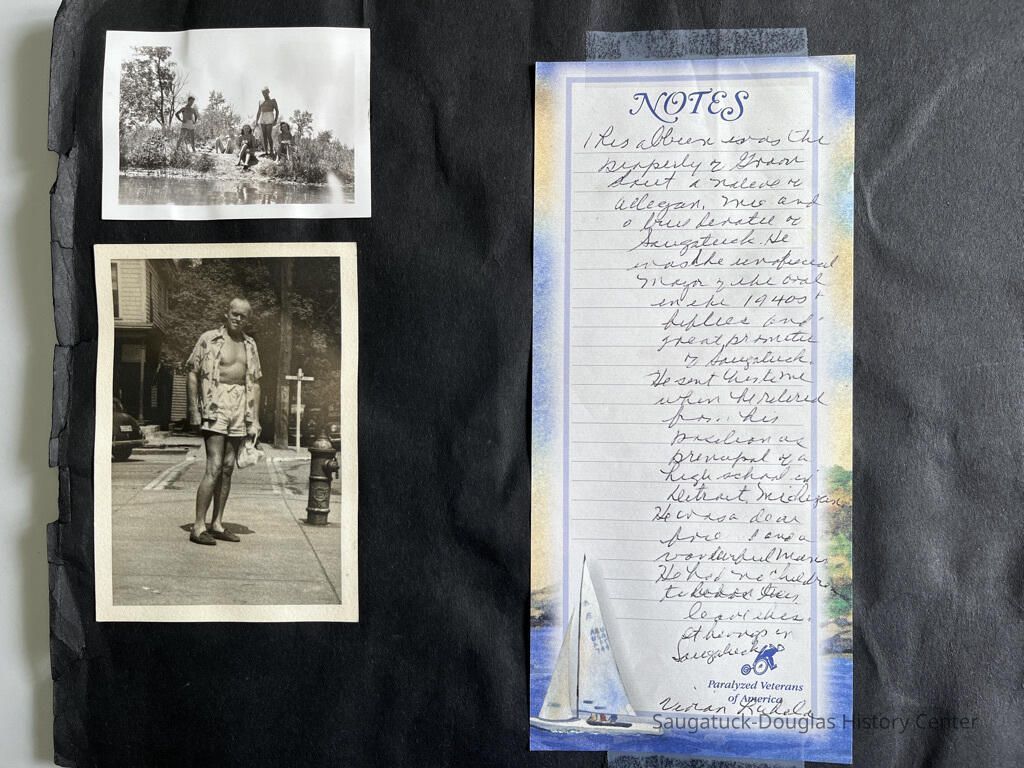 NOTES
This album was the
property of
a native of
Allegan, Mic and
a true devotee of
Saugatuck. He
was the unofficial
Mayor of the oval
in the 1940s +
fifties and
great promoter
of Saugatuck.
He sent this to me
when he retired
from his
position as
principal of a
high school in
Detroit Michigan
He was a dear
friend and a
wonderful man.
He had no children
to
leave this.
in
Saugatuck
Paralyzed Veterans
of America
Saugatuck-Douglas History Center